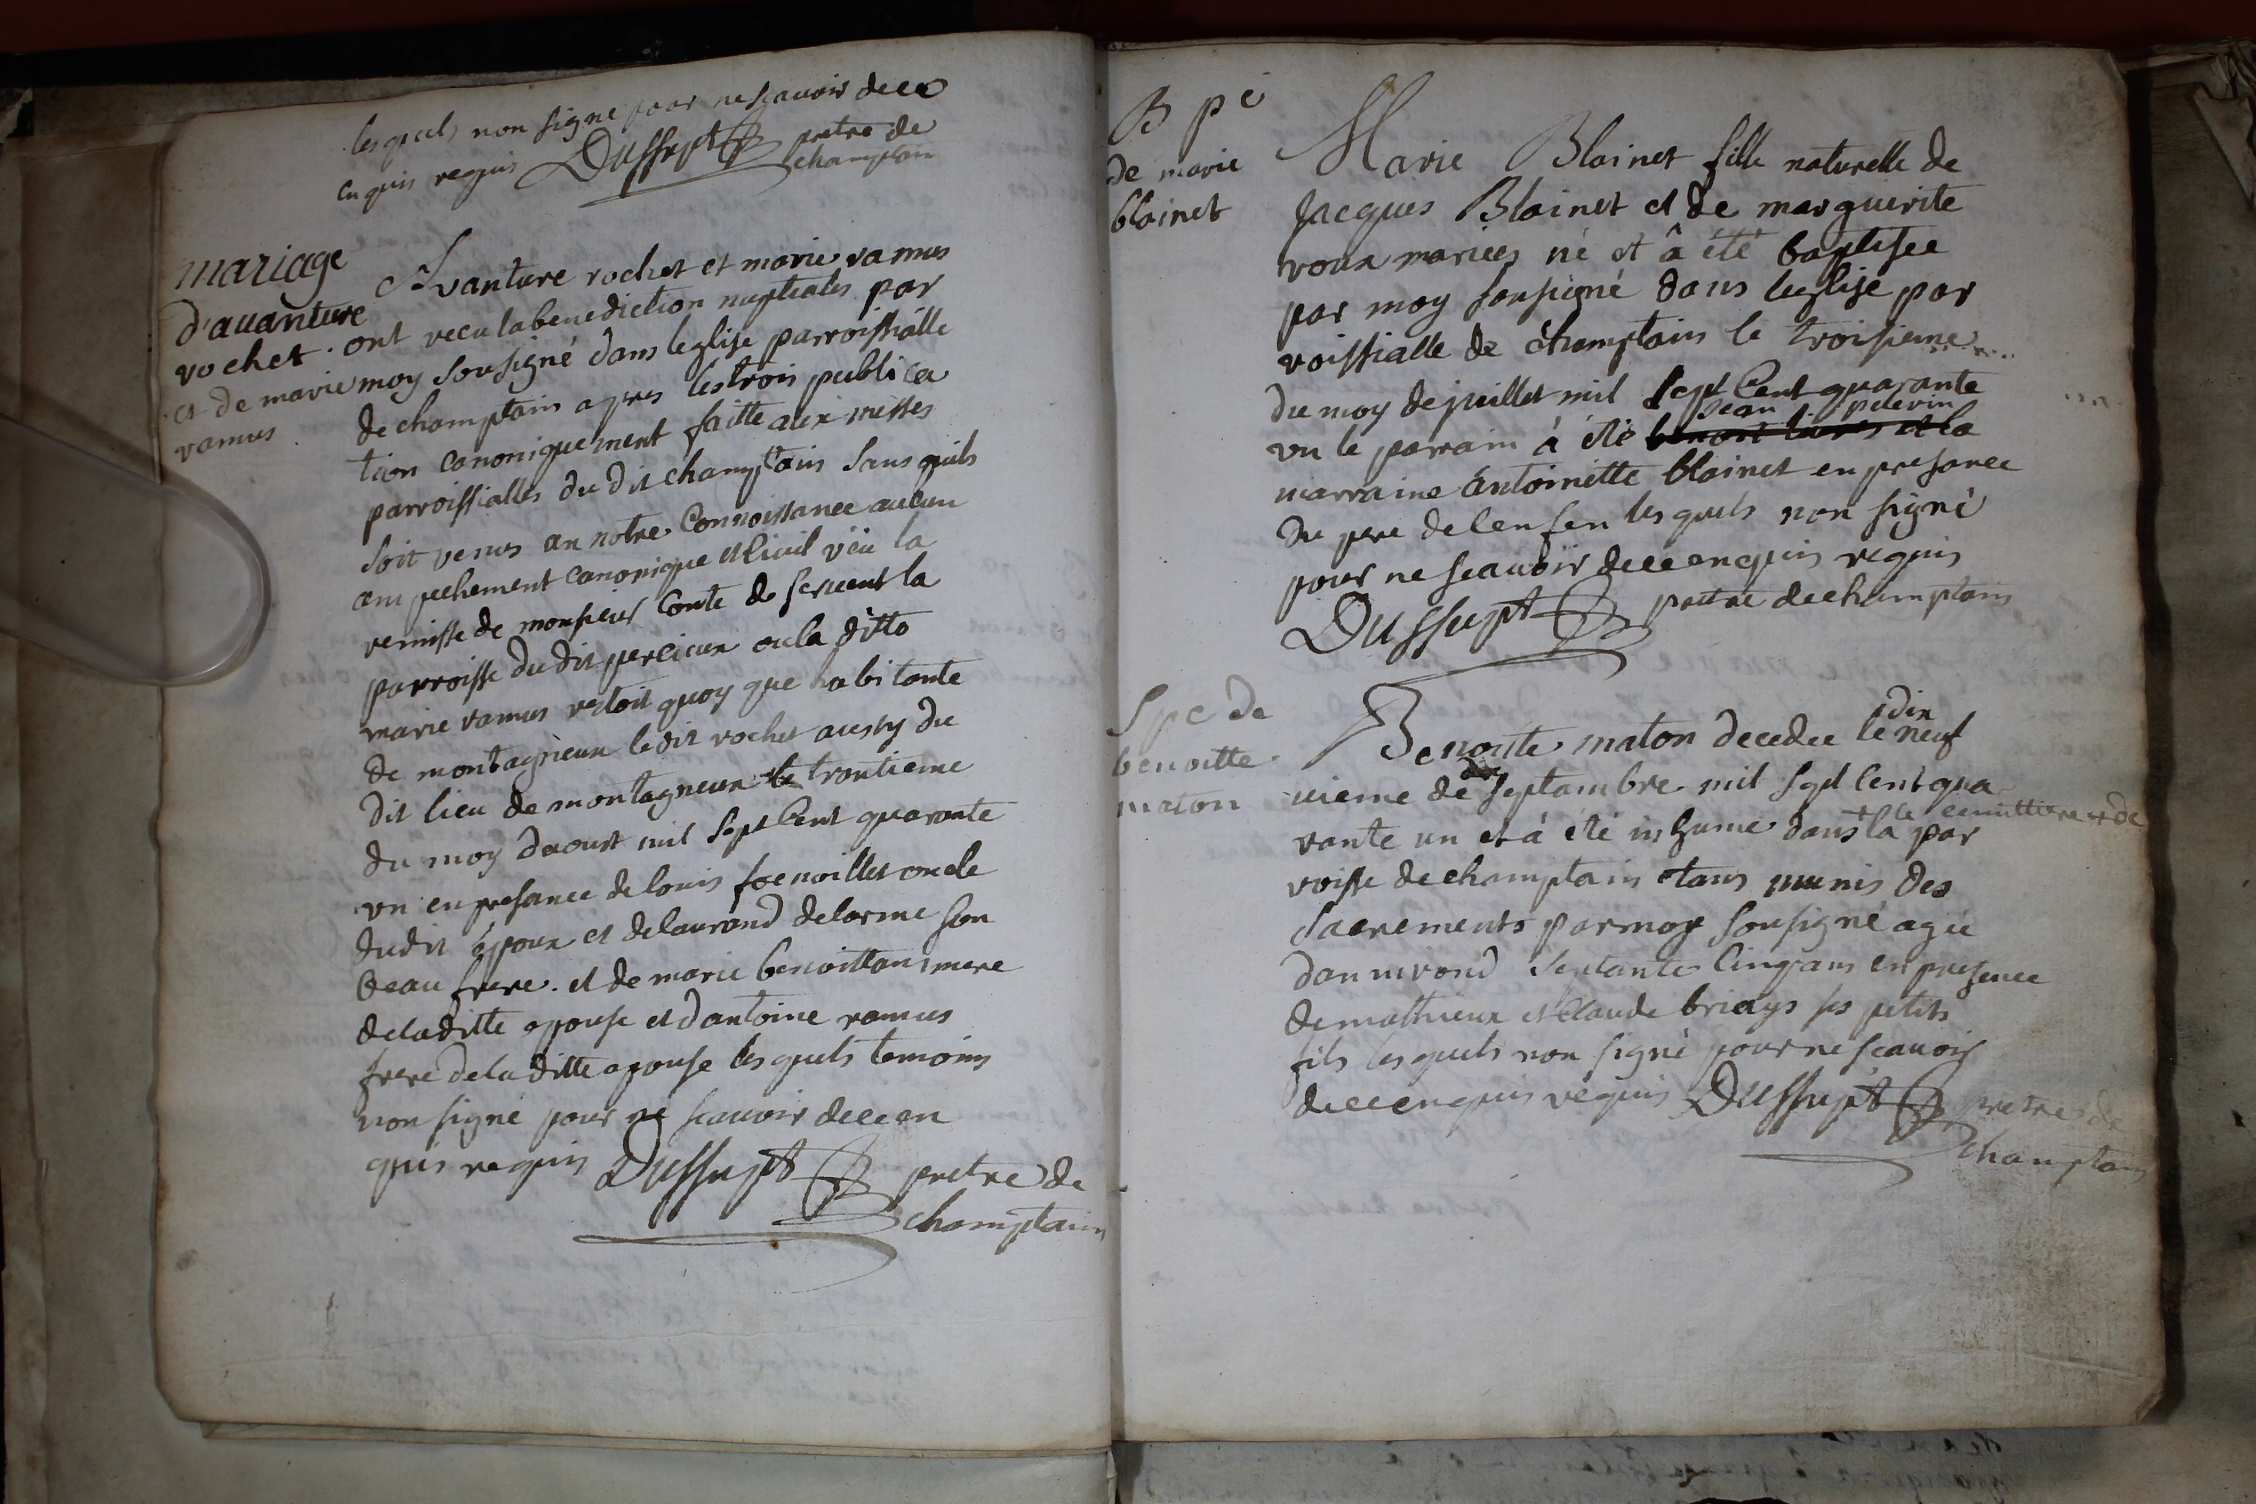 lesquels non signe pour ne scavoir de ce
enquis requis Dussupt pretre de
champtain
mariage
d'avanture
rochet
et de marie
ramus
Avanture rochet et marie ramus
ont recu la benediction nuptiales par
moy sousigné dans leglise parroissialle
de champtain apres les trois publica
tion canoniquement faitte aux messes
parroissialles du dit champtain sans quils
soit venus an notre connoissance aucun
ampechement canonique et civil vëu la
remisse de monsieur conte de
parroisse du dit percieux ou la ditto
marie ramus restoit quoy que habitante
de montagnieux le dit rochet aussy du
dit lieu de montagneux le trantieme
du moy daoust mil sept cent quarante
un en presance de louis foenoillet oncle
dudit époux et de laurand delorme son
beau frere. et de marie benoit mere
de la ditte epouse et dantoine ramus
frere de la ditte epouse les quels temoins
non signé pour ne scavoir de ce en
quis requis Dussupt pretre de
champtain
B pe
de marie
blainet
Marie Blainet fille naturelle de
Jacques Blainet et de marguerite
roux mariees né et â été baptisee
par moy sousigné dans leglise par
roissialle de champtain le troisieme
du moy de juillet mil sept cent quarante
jean pelerin
un le parrain à été benoit et la
marraine antoinette blainet en presance
du pere de lenfen les quels non signé
pour ne scavoir de ce enquis requis
Dussupt pretre de champtain
Spe de
benoitte
maton
dix
Benoite maton decedee le neuf
vieme de septambre mil sept cent qua
+ le cemittiere + de
rante un et à été inhume dans la par
roisse de champtain etans munis des
sacrements par moy sousigné agée
danviron septante cinq ans en presence
de mathieux et claude briays ses petits
fils les quels non signé pour ne scavoir
de ce enquis requis Dussupt pretre de
champtain